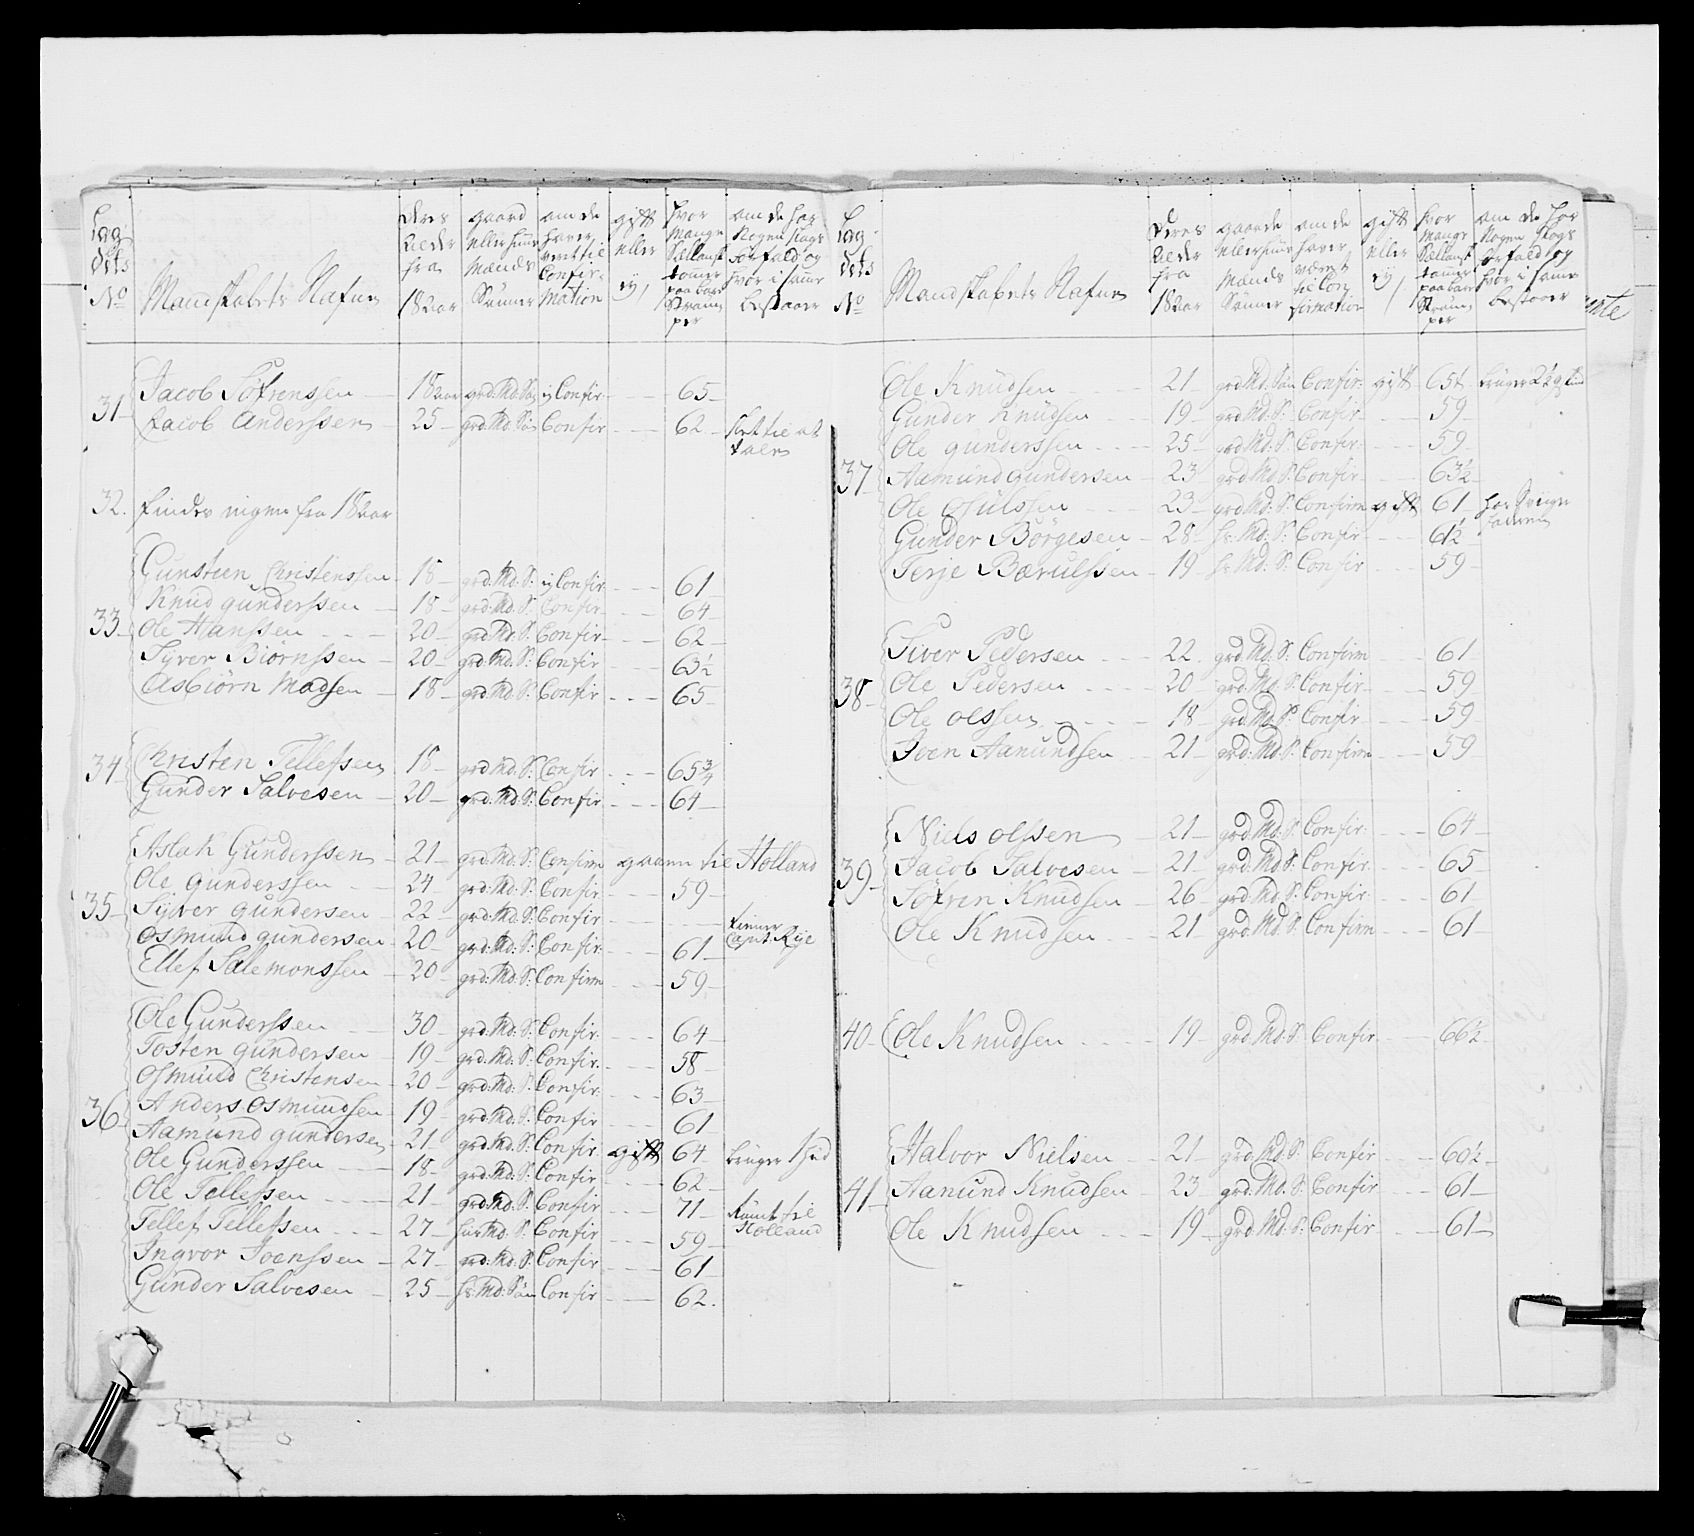 Lag dets No | Mandskabets Nafne | Deres Alder fra 18 aar | gaard eller huus Mænds Sønner | om de haver vert til Confirmation | gift eller ey | hvor mange Siellandske tommer paa bare Strømper | om de har Nogen slags forfald og hvor i samme bestaar
31 Jacob Söfrenssen 18 aar grd: Md: Søn ey Confir 65
Jacob Anderssen 25 grd: Md: Søn Confir 62
32. findes ingen fra 18 aar
33 Gunsteen Christenssen 18 grd: Md: S: ey Confir 61
Knud gunderssen 18 grd: Md: S: Confir 64
Ole Hanssen 20 grd: Md: S: Confir 62
Syver Biörnssen 20 grd: Md: S: Confir 63½
Asbiörn Madsen 18 grd: Md: S: Confir 65
34 Christen Tellefsen 18 grd: Md: S: Confir 65¾
Gunder Salvesen 20 grd: Md: S: Confir 64
35 Aslak Gunderssen 21 grd: Md: S: Confirm gaaen til Holland
Ole gunderssen 24 grd: Md: S: Confir 59
Syver gundersen 22 grd: Md: S: Confir tiener Capit: Rye
Osmund gundersen 20 grd: Md: S: Confir 61
Ellef Salemonssen 20 grd: Md: S: Confirm 59
36 Ole Gunderssen 30 grd: Md: S: Confir 64
Tosten gundersen 19 grd: Md: S: Confir 58
Osmund Christensen 20 grd: Md: S: Confir 63
Anders Osmundsen 19 grd: Md: S: Confir 61
Aamund gundersen 21 grd: Md: S: Confir gift 64 bruger 1 hud
Ole Gunderssen 18 grd: Md: S: Confir 62
Ole Tellefssen 21 grd: Md: S: Confir 71 Rømt til Holland
Tellef Tellefsen 27 huus Md: S: Confir 59
Ingvor Joenssen 27 grd: Md: S: Confir 61
Gunder Salvesen 25 hs: Md: Søn Confir 62.
Lag dets No | Mandskabets Nafne | Deres Alder fra 18 aar | gaards eller huus Mænds Sønner | om de haver været til Confirmation | gift eller ey | hvor mange Siellandske tommer paa bare Strømper | om de har Nogen slags forfald og hvor i samme bestaar
37 Ole Knudsen 21 grd Md: Søn Confir: gift 65½
Gunder Knudsen 19 grd: Md: S: Confir 59
Ole gunderssen 25 grd: Md: S: Confir: 59
Aamund gundersen 23 grd Md S: Confir 63½
Ole Osulssen 23 grd: Md: S: Confirm gift 61
Gunder Börgesen 28 hs: Md: S: Confir 61½
Terje Bærulssen 19 hs Md: S: Confir 59
38 Siver Pedersen 22 grd: Md: S: Confirm 61
Ole Pedersen 20 grd: Md: S: Confir 59
Ole olssen 18 grd: Md S: Confir 59
Joen Aanundsen 21 grd: Md: S: Confirm 59
39 Niels olssen 21 grd: Md: S: Confir: 64
Jacob Salvesen 21 grd: Md: S: Confir 65
Söfren Knudsen 26 grd: Md: S: Confir 61
Ole Knudsen 21 grd: Md: S: Confirm 61
40 Ole Knudsen 19 grd: Md: S: Confir 66½
41 Halvor Nielsen 21 grd Md: S: Confir 60½
Aanund Knudsen 23 grd: Md: S: Confir 61
Ole Knudsen 19 grd: Md: S: Confir 61